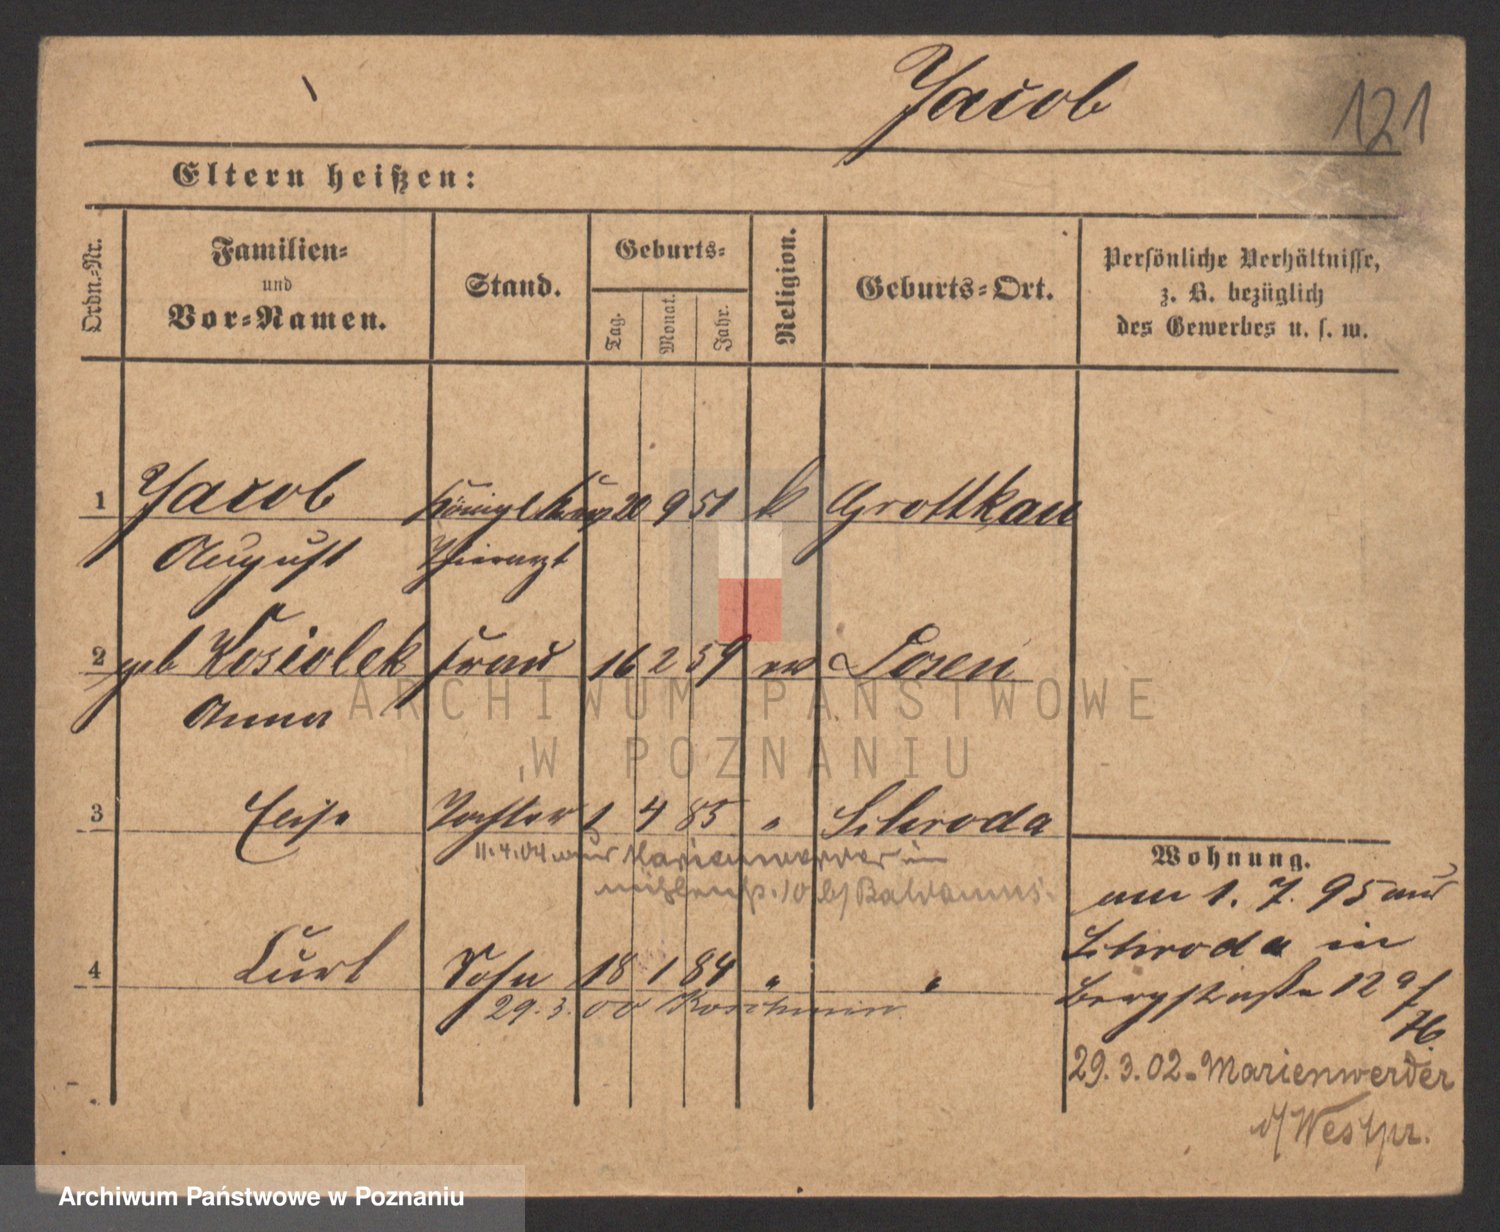 Jacob
121
Eltern heißen:
Ordn.-Nr.
Familien-
und
Vor-Namen.
Stand.
Geburts-
Tag.
Monat.
Jahr.
Religion.
Geburts-Ort.
Persönliche Verhältnisse,
z. B. bezüglich
des Gewerbes u. s. w.
1 Jacob Königl. 20 9 51 k Grottkau
August Thierarzt
2 geb Kosiolek Frau 16 2 59 ev Posen
Anna
ARCHIWUM PAŃSTWOWE
W POZNANIU
3 Elise Tochter 1 4 85 " Schroda
11.4.04 Marienwerder in
10 b/
4 Curt Sohn 18 1 84 " "
29.3.00 Koschmin
Wohnung.
am 1. 7. 95 aus
Schroda in
Bergstraße 12a
29.3.02 - Marienwerder
i/Westpr.
Archiwum Państwowe w Poznaniu